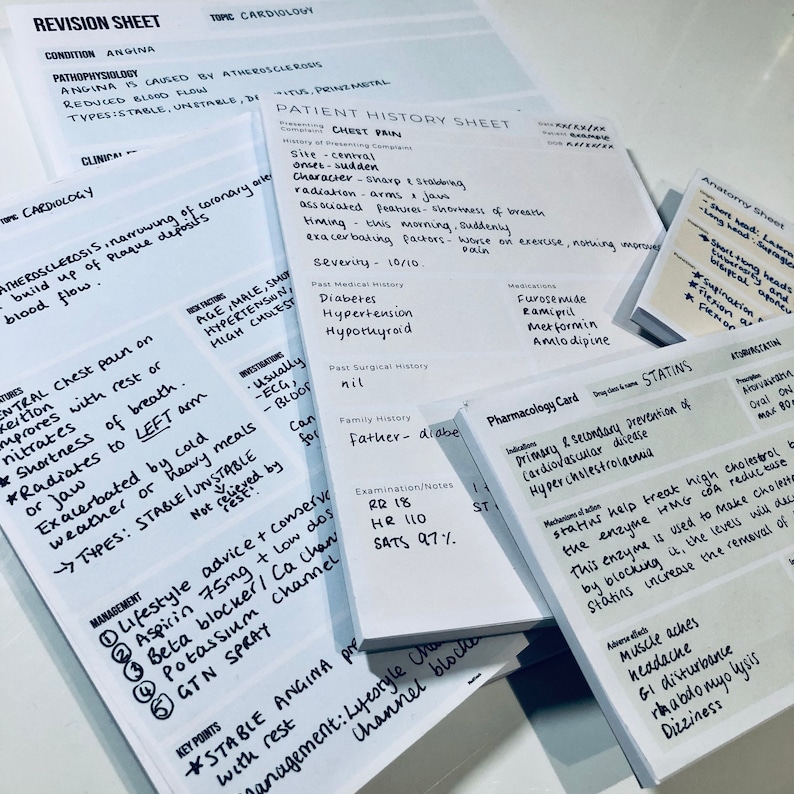 REVISION SHEET
TOPIC CARDIOLOGY
CONDITION ANGINA
PATHOPHYSIOLOGY
ANGINA IS CAUSED BY ATHEROSCLEROSIS
REDUCED BLOOD FLOW
TYPES: STABLE, UNSTABLE, PRINZMETAL
CLINICAL
TOPIC CARDIOLOGY
ATHEROSCLEROSIS, narrowing of coronary
build up of plaque deposits
blood flow.
RISK FACTORS
AGE, MALE,
HYPERTENSION,
HIGH
CENTRAL chest pain on
improves with rest or
nitrates
* Shortness of breath.
* Radiates to LEFT arm
or jaw
Exacerbated by cold
weather or heavy meals
→ TYPES: STABLE/UNSTABLE
Not relieved by
rest!
INVESTIGATIONS
- usually
- ECG,
- BLOO
Can
for
MANAGEMENT
① Lifestyle advice +
② Aspirin 75mg + low
③ Beta blocker / Ca
④ Potassium channel
⑤ GTN SPRAY
KEY POINTS
* STABLE ANGINA
with rest
management: Lifestyle
channel
PATIENT HISTORY SHEET
Presenting Complaint CHEST PAIN
Date xx/xx/xx
Patient example
DOB xx/xx/xx
History of Presenting Complaint
Site - central
onset - sudden
character - sharp & stabbing
radiation - arms & jaw
associated features - shortness of breath
timing - this morning, suddenly
exacerbating factors - worse on exercise, nothing improves
pain
severity - 10/10.
Past Medical History
Diabetes
Hypertension
Hypothyroid
Medications
Furosemide
Ramipril
Metformin
Amlodipine
Past Surgical History
nil
Family History
Father - diabe
Examination/Notes
RR 18
HR 110
SATS 97%
Anatomy Sheet
- Short head:
- Long head:
* Short + long heads
tuberosity and
bicipital
* Supination
* Flexion
* Flexion
Pharmacology Card
Drug class & name STATINS
ATORVASTATIN
Indications
primary & secondary prevention of
cardiovascular disease
Hypercholestrolaemia
Prescription
Atorvastatin
oral
max
Mechanisms of action
statins help treat high cholestrol
the enzyme HMG COA reductase
This enzyme is used to make
by blocking it, the levels will
statins increase the removal of
Adverse effects
Muscle aches
headache
GI disturbance
rhabdomyolysis
Dizziness